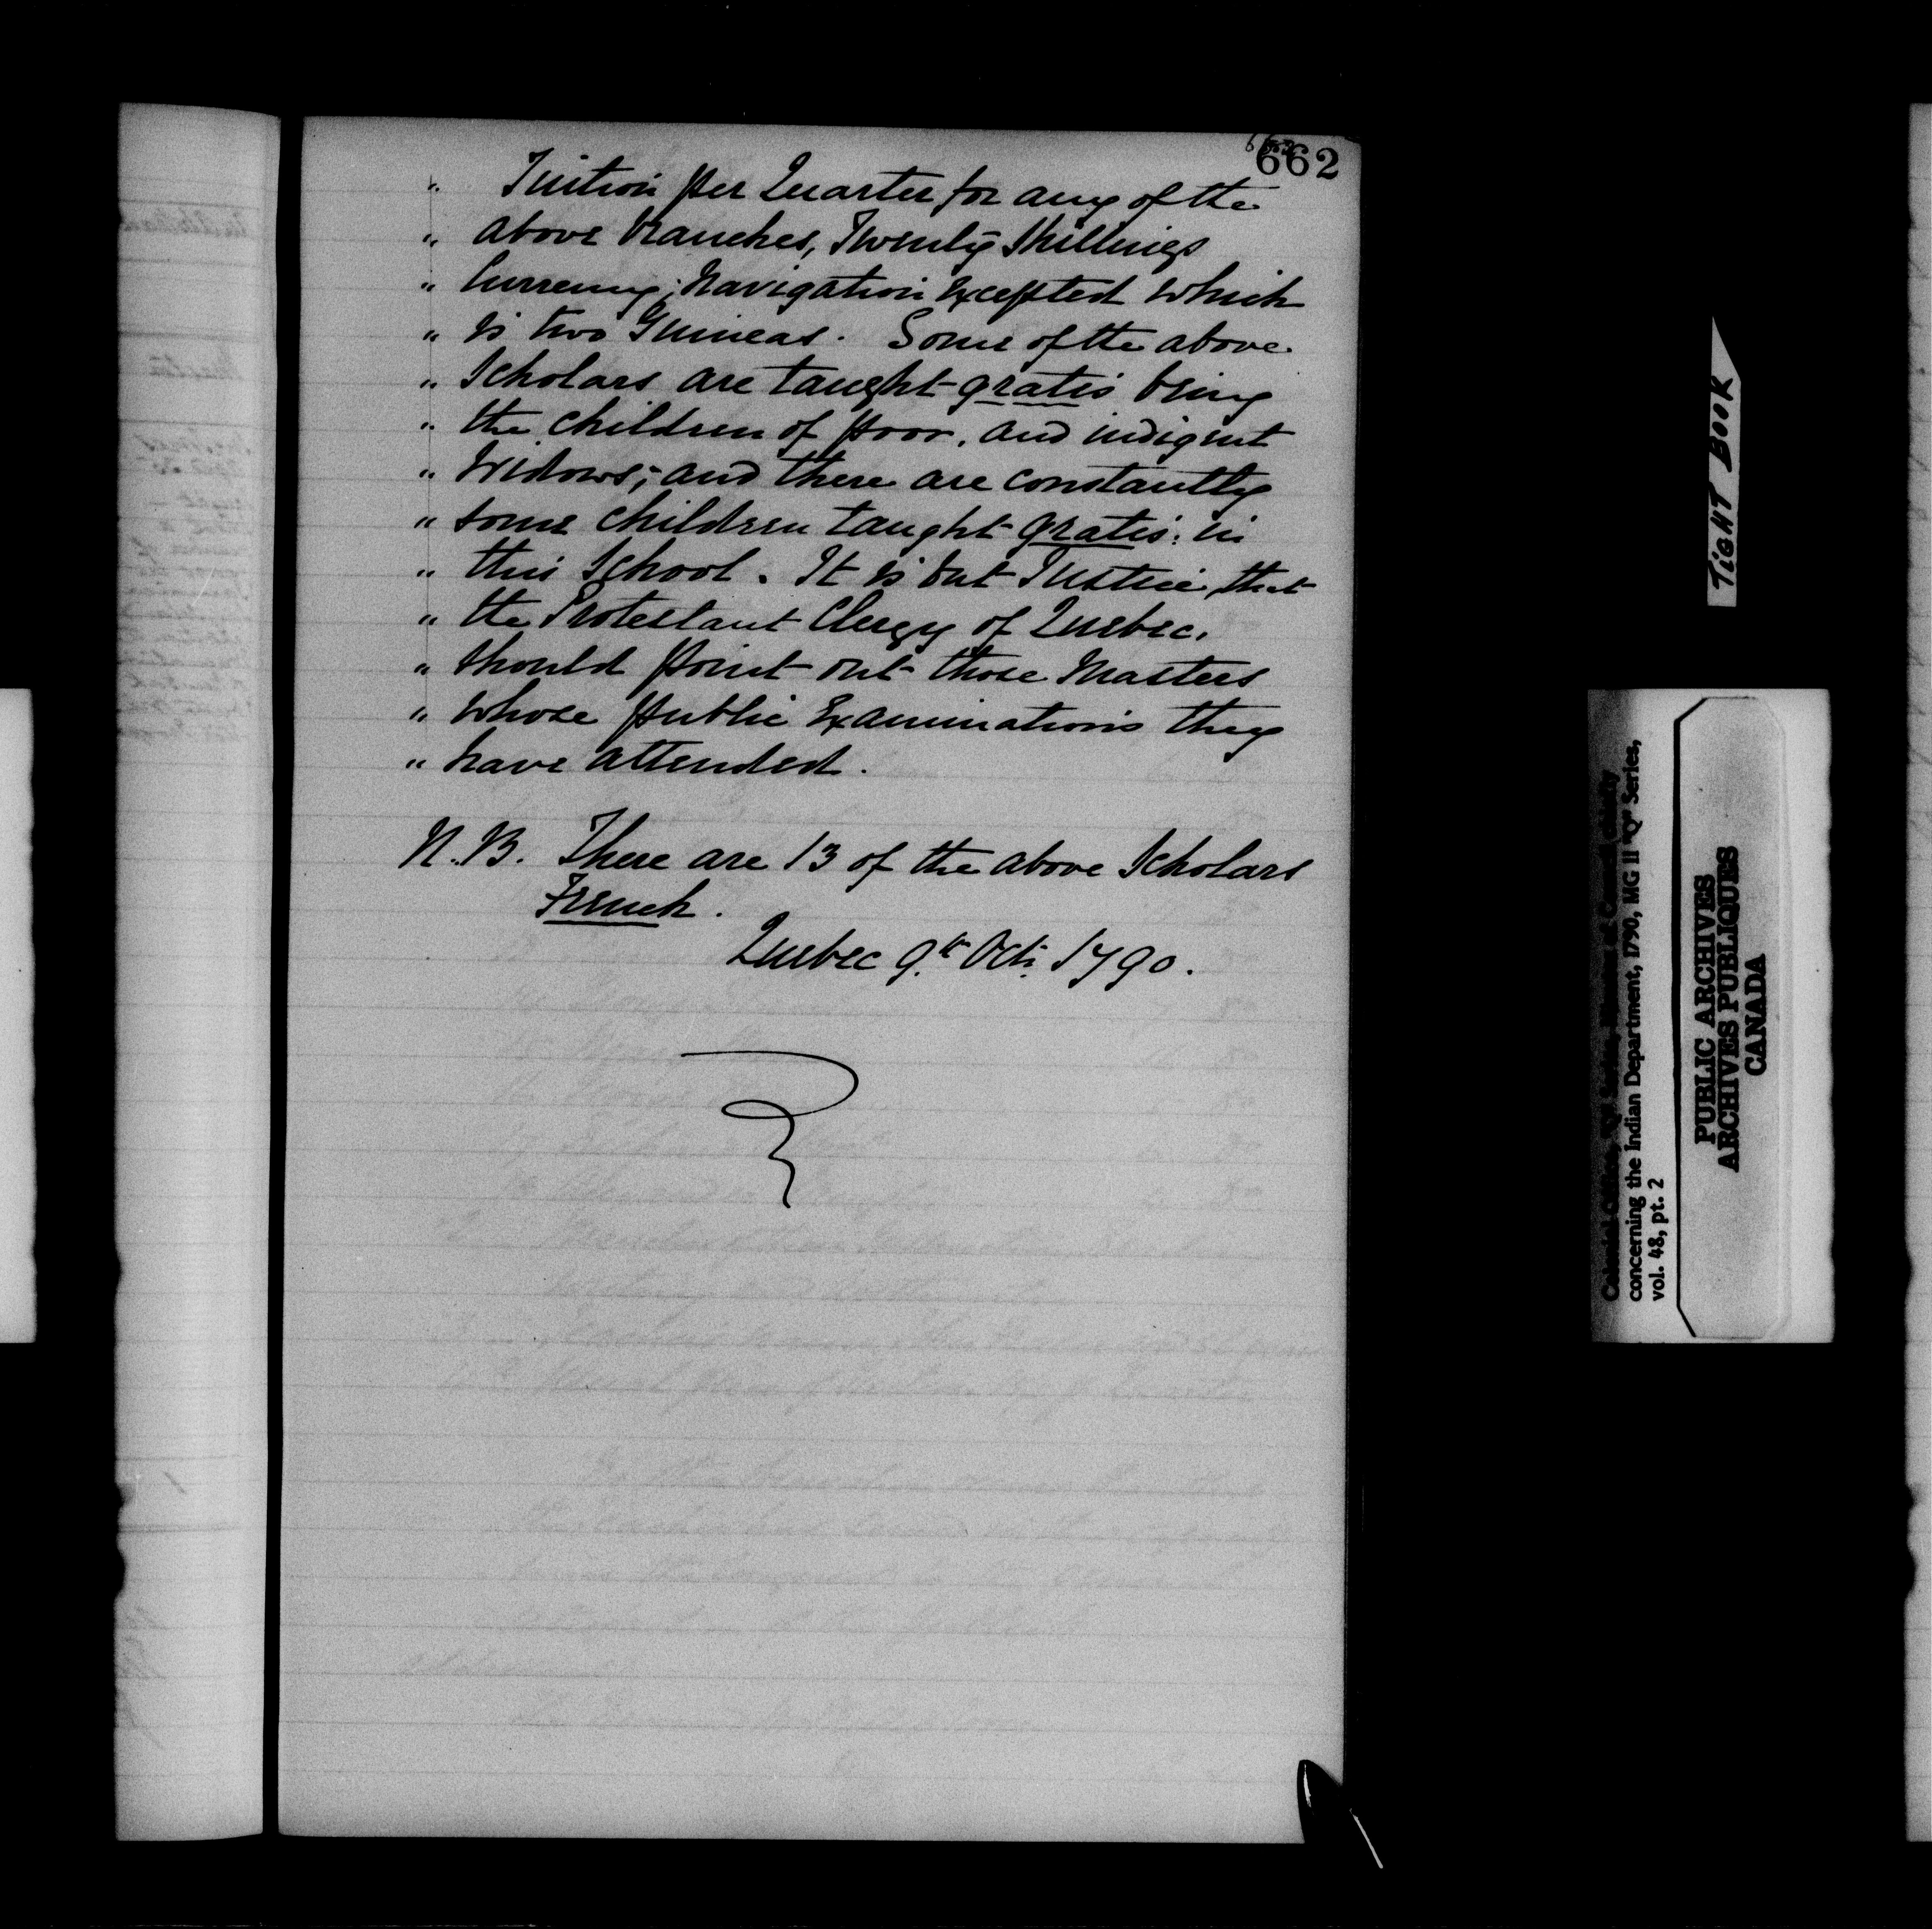 662
" Tuition per Quarter for any of the
" above branches, Twenty Shillings
" Currency; Navigation Excepted which
" is two Guineas. Some of the above
" Scholars are taught gratis being
" the children of poor, and indigent
" Widows; and there are constantly
" some children taught gratis: in
" this School. It is but Justice, that
" the Protestant Clergy of Quebec,
" should point out those Masters
" whose public Examinations they
" have attended.
N.B. There are 13 of the above Scholars
French.
Quebec 9th Oct. 1790.
TIGHT BOOK
concerning the Indian Department, 1790, MG 11 "Q" Series,
vol. 48, pt. 2
PUBLIC ARCHIVES
ARCHIVES PUBLIQUES
CANADA